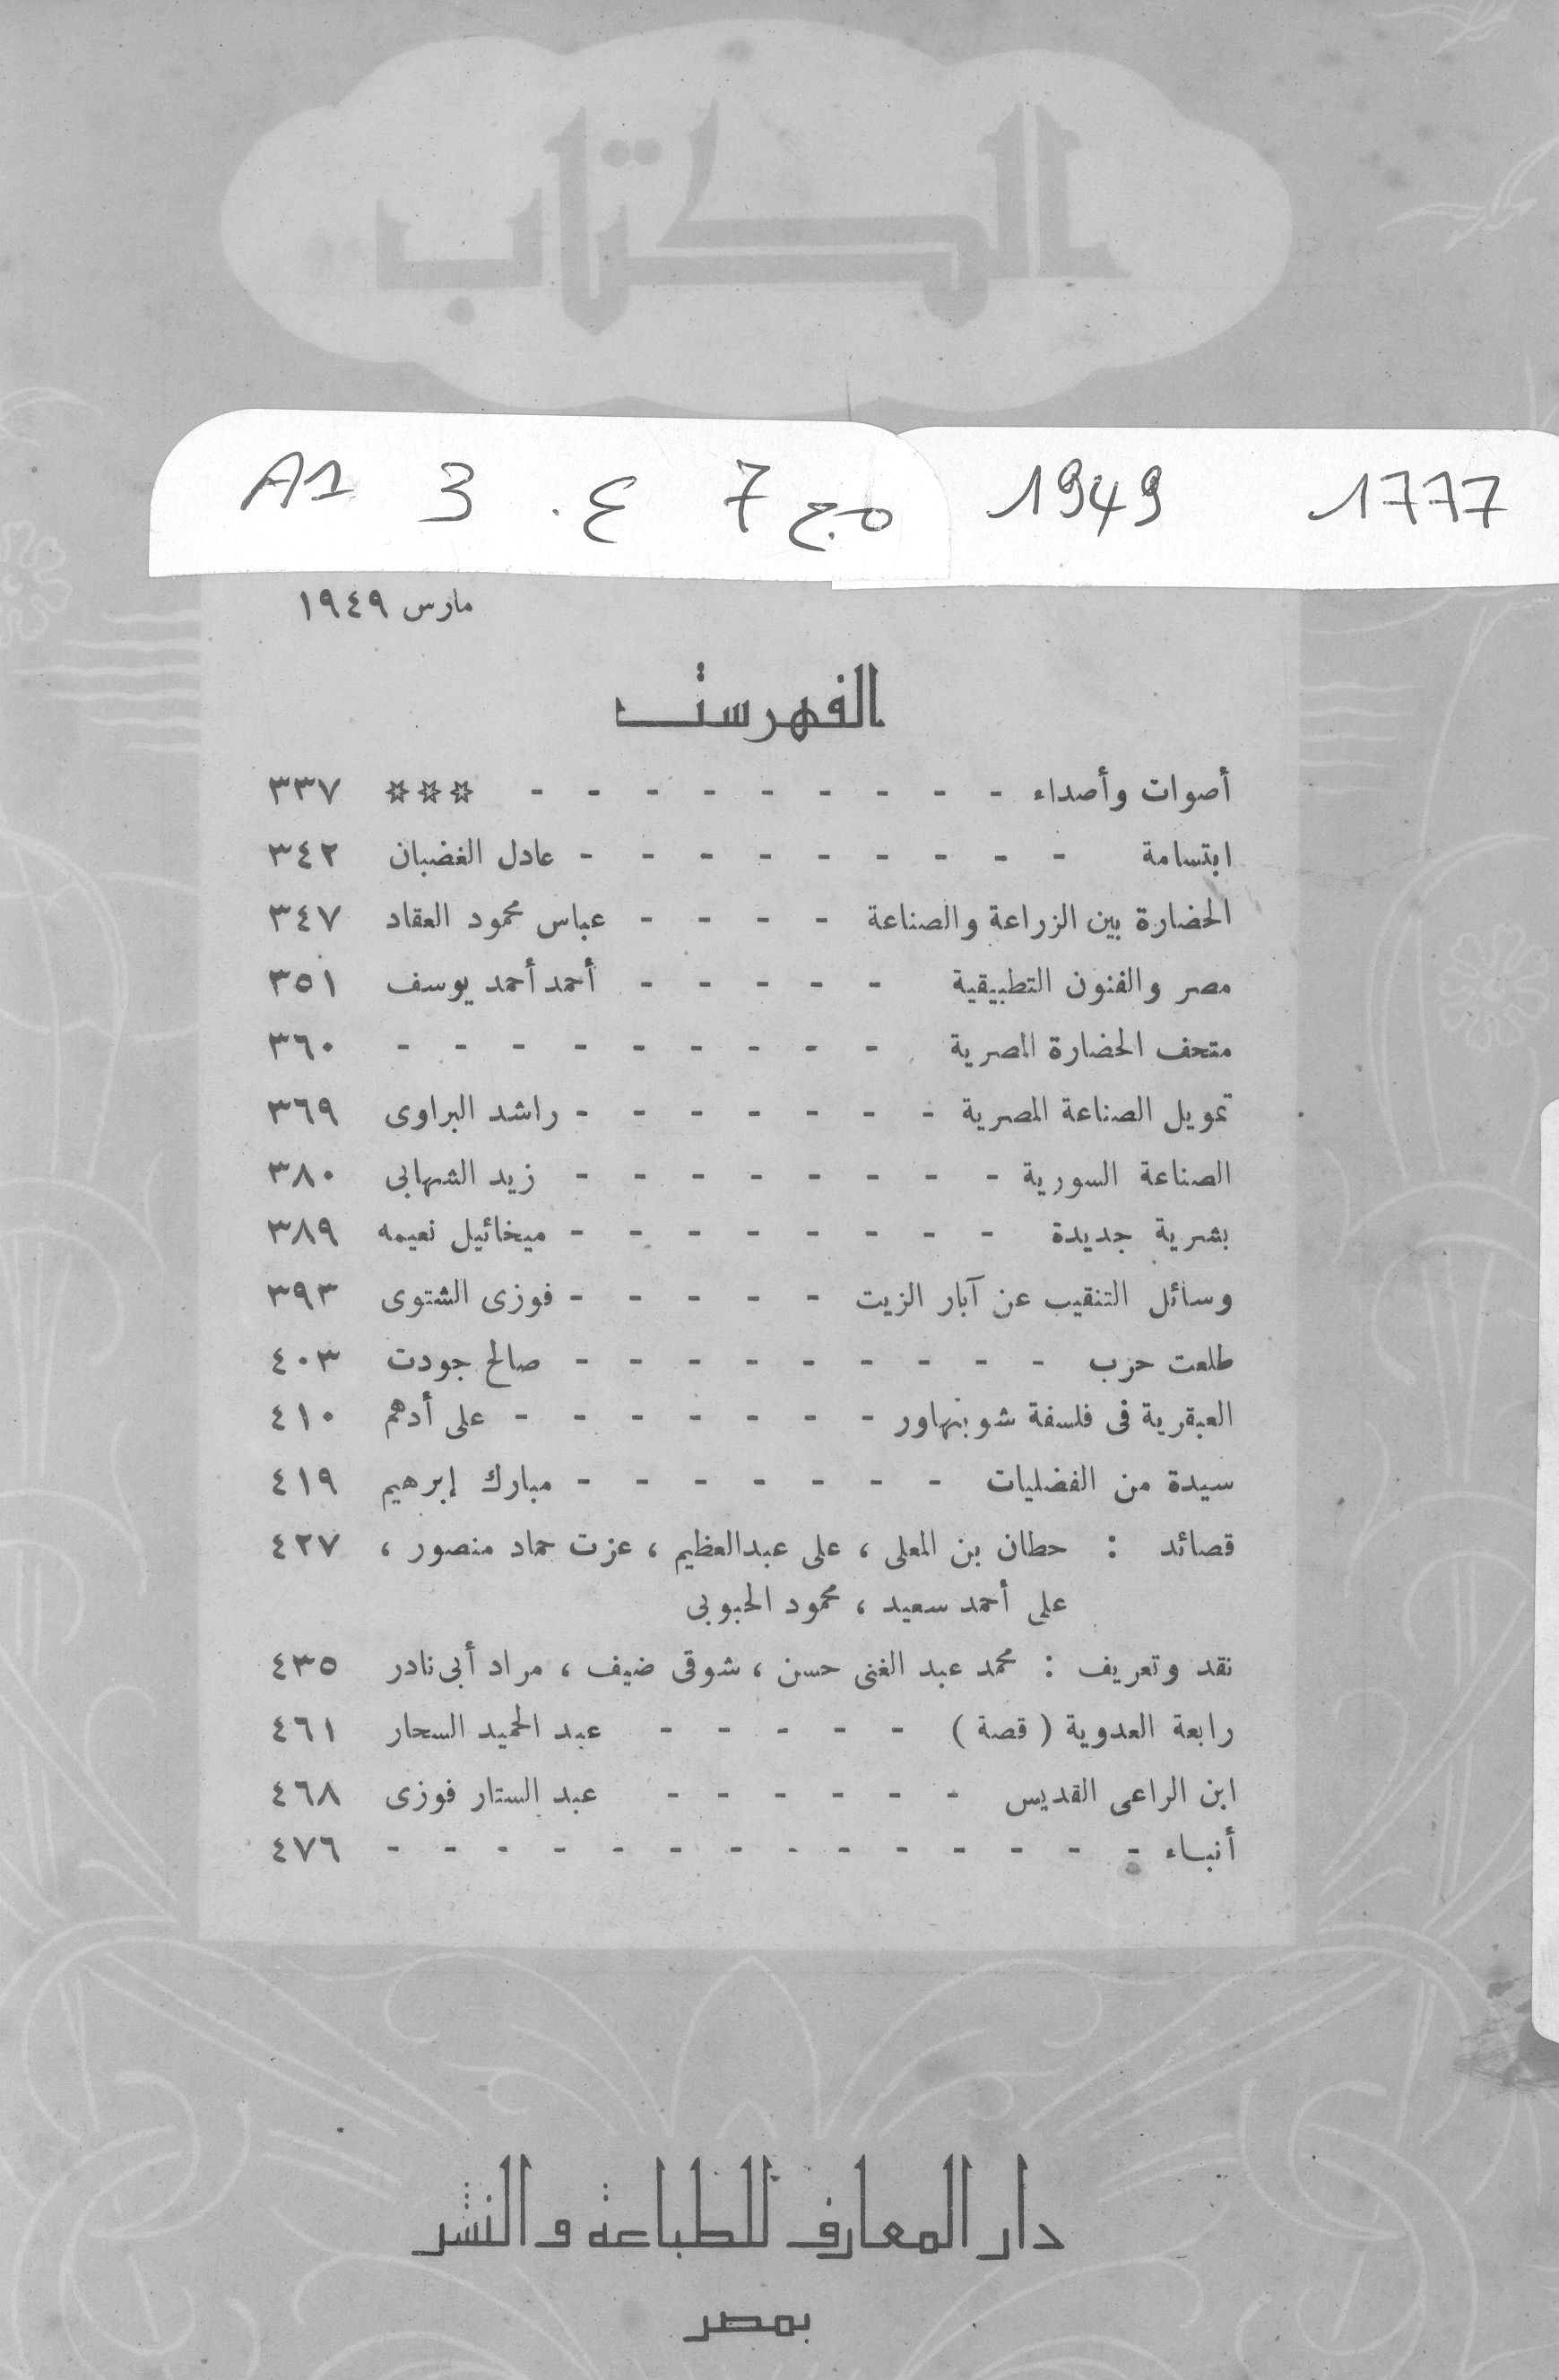 الكتاب
1777 1949 مج 7 ع. 3 A1
مارس ١٩٤٩
الفهرست
أصوات وأصداء - - - - - - - - - *** ٣٣٧
ابتسامة - - - - - - - - - عادل الغضبان ٣٤٢
الحضارة بين الزراعة والصناعة - - - - عباس محمود العقاد ٣٤٧
مصر والفنون التطبيقية - - - - - أحمد أحمد يوسف ٣٥١
متحف الحضارة المصرية - - - - - - - - - ٣٦٠
تمويل الصناعة المصرية - - - - - - - راشد البراوى ٣٦٩
الصناعة السورية - - - - - - - - زيد الشهابى ٣٨٠
بشرية جديدة - - - - - - - - ميخائيل نعيمه ٣٨٩
وسائل التنقيب عن آبار الزيت - - - - - فوزى الشتوى ٣٩٣
طلعت حرب - - - - - - - - - صالح جودت ٤٠٣
العبقرية فى فلسفة شوبنهاور - - - - - - - على أدهم ٤١٠
سيدة من الفضليات - - - - - - - مبارك إبرهيم ٤١٩
قصائد : حطان بن المعلى ، على عبدالعظيم ، عزت حماد منصور ، ٤٢٧
على أحمد سعيد ، محمود الحبوبى
نقد وتعريف : محمد عبد الغنى حسن ، شوقى ضيف ، مراد أبى نادر ٤٣٥
رابعة العدوية ( قصة ) - - - - - عبد الحميد السحار ٤٦١
ابن الراعى القديس - - - - - - عبد الستار فوزى ٤٦٨
أنباء - - - - - - - - - - - - - - ٤٧٦
دار المعارف للطباعة والنشر
بمصر